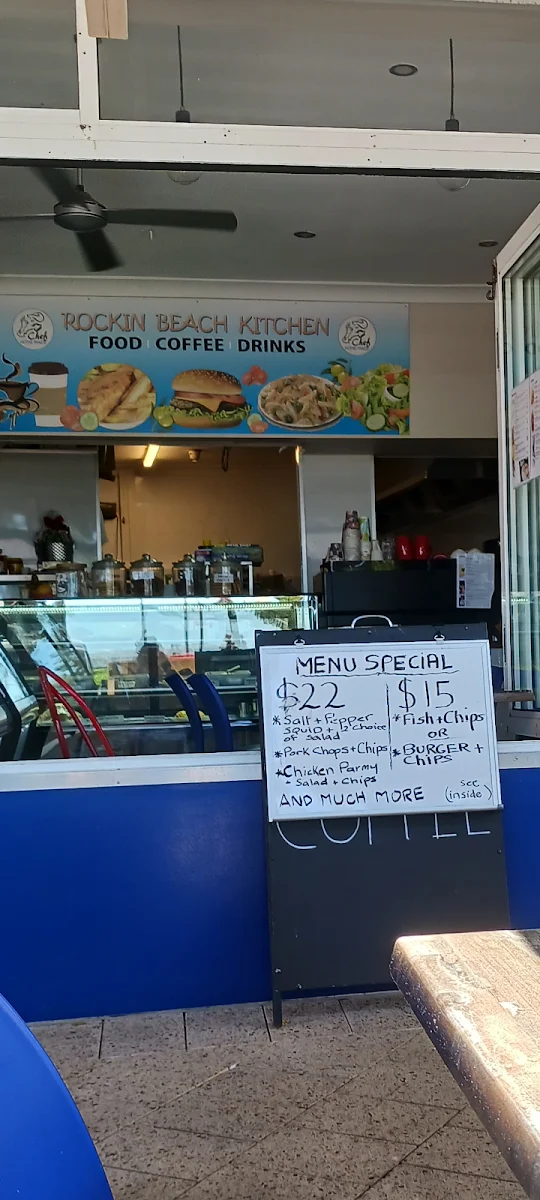 ROCKIN BEACH KITCHEN
FOOD | COFFEE | DRINKS
Chef
Chef
MENU SPECIAL
$22
* Salt + Pepper
squid + 12 choice
of Salad
* Pork Chops + Chips
* Chicken Parmy
+ Salad + Chips
$15
* Fish + Chips
OR
* BURGER +
CHIPS
AND MUCH MORE
(see
inside)
COFFEE